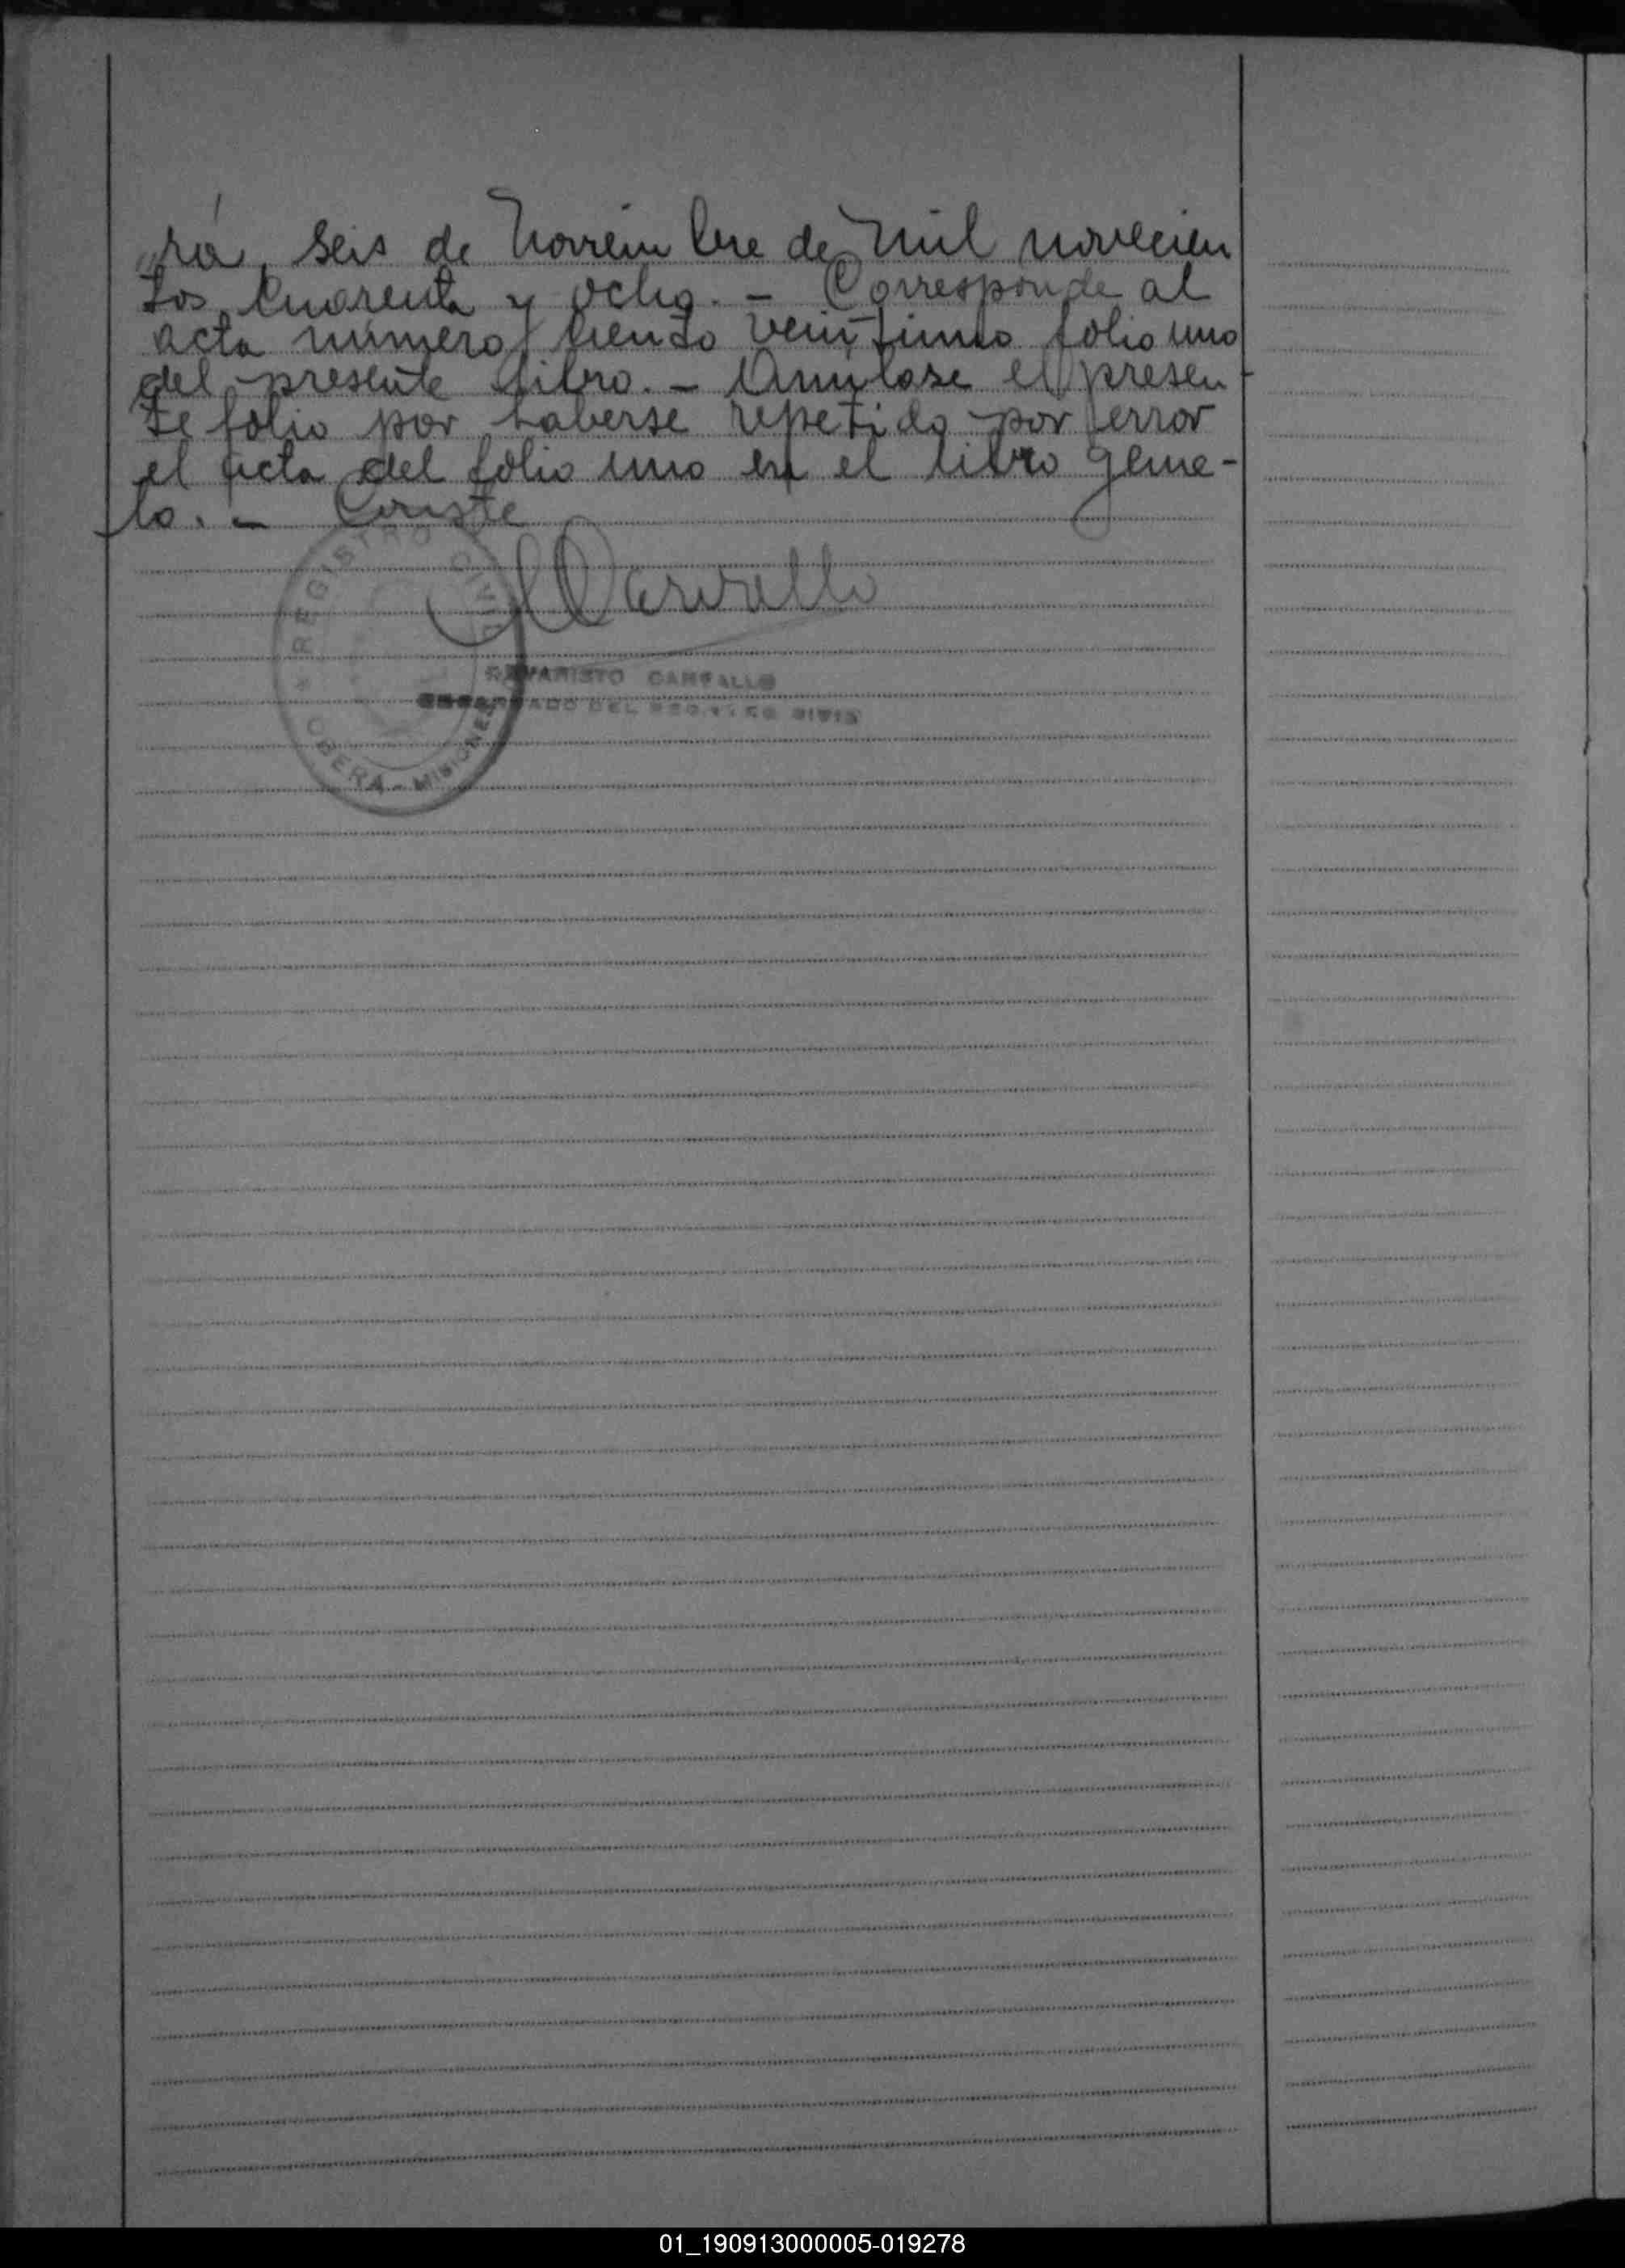 "rá, seis de Noviembre de mil novecien
tos cuarenta y ocho. - Corresponde al
acta número ciento veintiuno folio uno
del presente libro. - Anulase el presen
te folio por haberse repetido por error
el acta del folio uno en el libro geme-
lo. - Conste
REGISTRO CIVIL
EVARISTO CARVALLO
ENCARGADO DEL REGISTRO CIVIL
OBERÁ - MISIONES
01_190913000005-019278